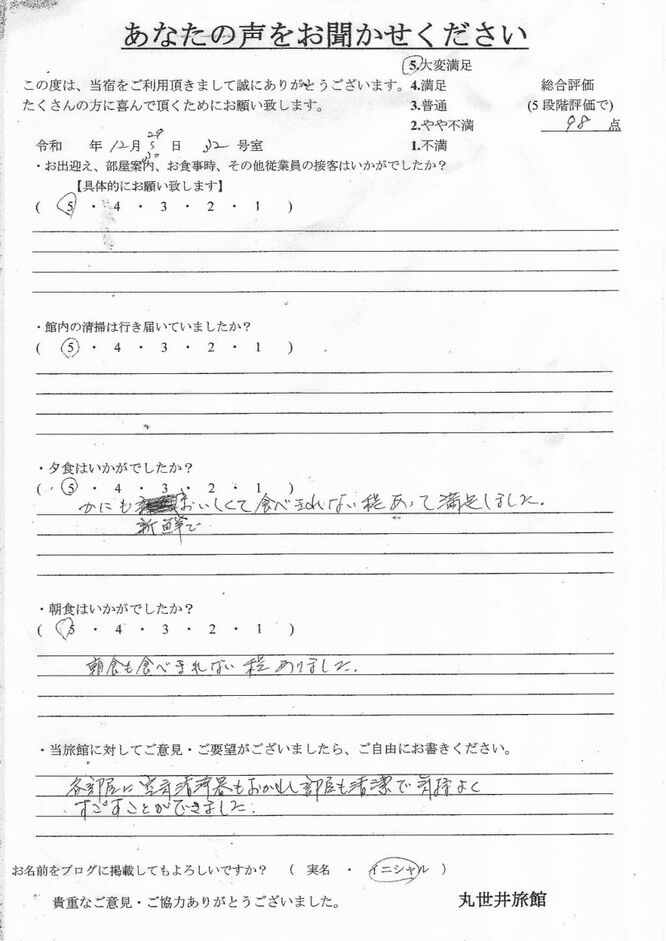 あなたの声をお聞かせください
5.大変満足
この度は、当宿をご利用頂きまして誠にありがとうございます。 4.満足 総合評価
たくさんの方に喜んで頂くためにお願い致します。 3.普通 (5段階評価で)
2.やや不満 98 点
令和 年 12月 29 日 号室 1.不満
・お出迎え、部屋案内、お食事時、その他従業員の接客はいかがでしたか?
【具体的にお願い致します】
( 5 ・ 4 ・ 3 ・ 2 ・ 1 )
・館内の清掃は行き届いていましたか?
( 5 ・ 4 ・ 3 ・ 2 ・ 1 )
・夕食はいかがでしたか?
( 5 ・ 4 ・ 3 ・ 2 ・ 1 )
かにも おいしくて食べきれない程あって満足しました.
新鮮で
・朝食はいかがでしたか?
( 5 ・ 4 ・ 3 ・ 2 ・ 1 )
朝食も食べきれない程ありました.
・当旅館に対してご意見・ご要望がございましたら、ご自由にお書きください。
各部屋に空気清浄器もおかれ部屋も清潔で気持よく
すごすことができました.
お名前をブログに掲載してもよろしいですか? ( 実名 ・ イニシャル )
貴重なご意見・ご協力ありがとうございました。 丸世井旅館